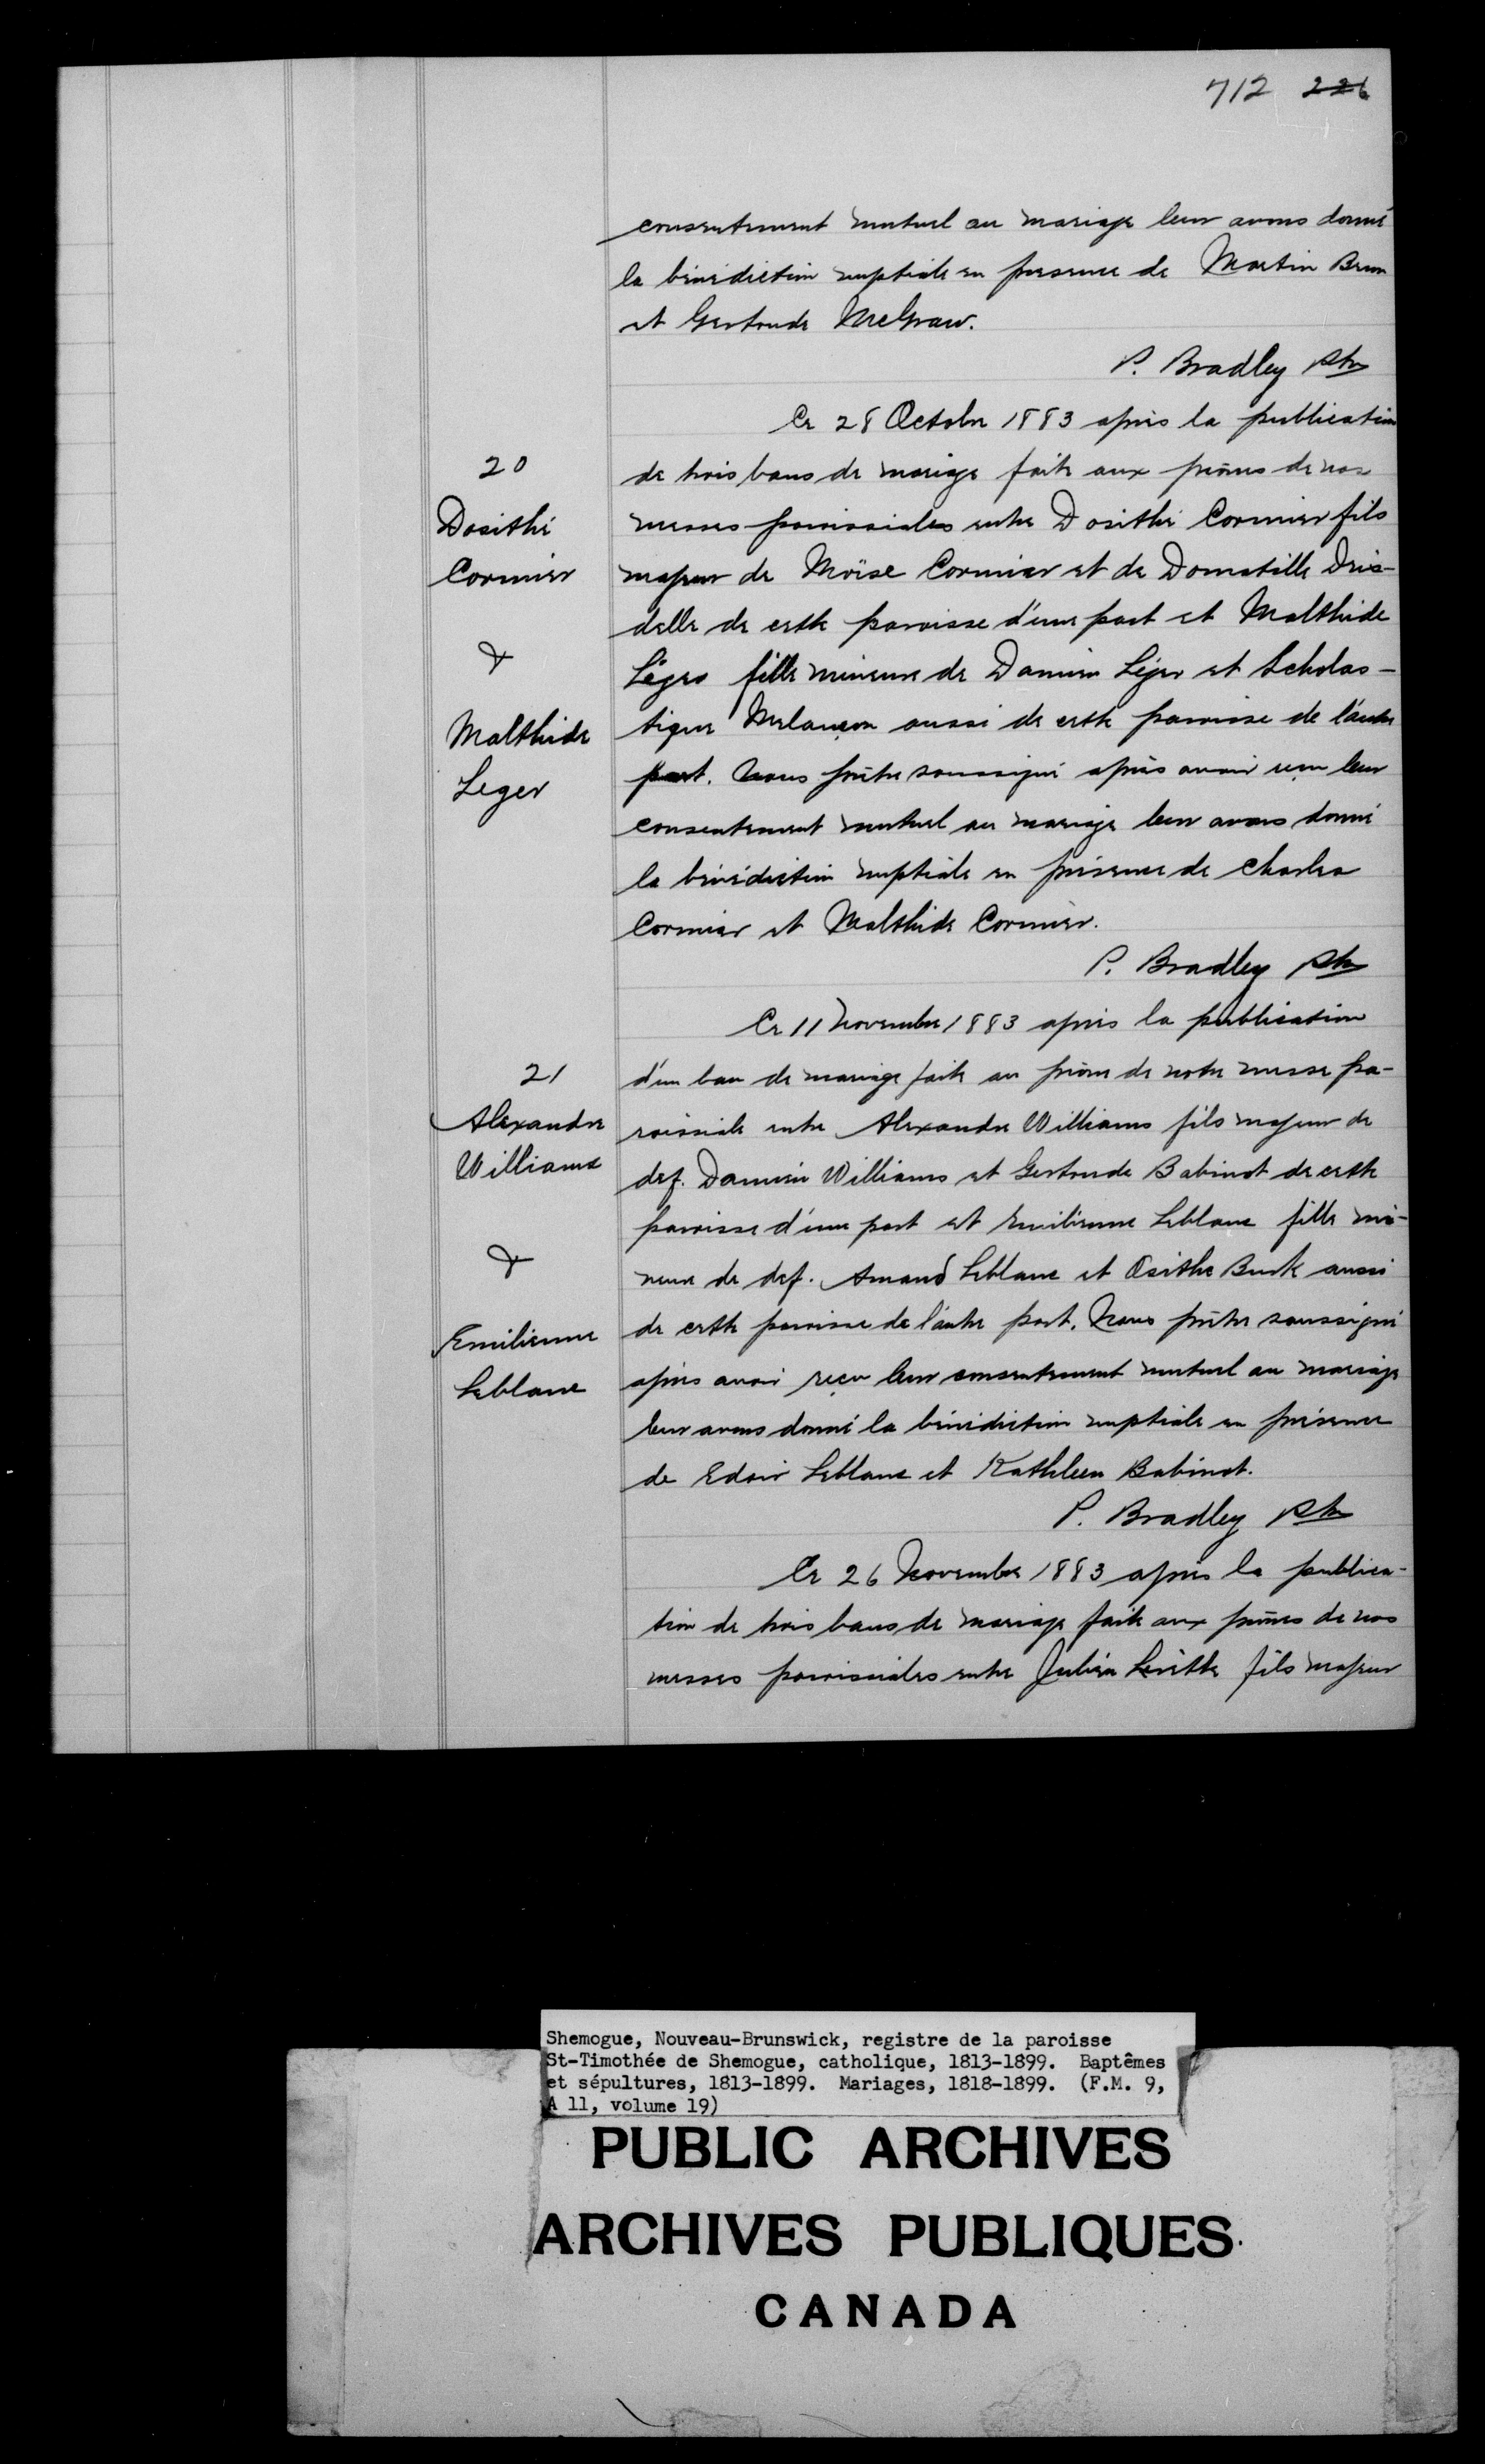 712 226
consentement mutuel au mariage leur avons donné
la bénédiction nuptiale en presence de Martin Brun
et Gertrude McGraw.
P. Bradley Ptr
Ce 28 Octobre 1883 après la publication
20
de trois bans de mariage faite aux prônes de nos
Dosithé
messes paroissiales entre Dosithé Cormier fils
Cormier
majeur de Moïse Cormier et de Domatille Dris-
delle de cette paroisse d'une part et Malthide
&
Léger fille mineure de Damien Léger et Scholas-
Malthide
tique Melançon aussi de cette paroisse de l'autre
Leger
part. Nous prêtre soussigné après avoir reçu leur
consentement mutuel au mariage leur avons donné
la bénédiction nuptiale en présence de Charles
Cormier et Malthide Cormier.
P. Bradley Ptr
Ce 11 Novembre 1883 après la publication
21
d'un ban de mariage faite au prône de notre messe pa-
Alexandre
roissiale entre Alexandre Williams fils majeur de
Williams
def. Damien Williams et Gertrude Babinot de cette
paroisse d'une part et Emilienne Leblanc fille mi-
&
neure de def. Amand Leblanc et Osithe Burk aussi
Emilienne
de cette paroisse de l'autre part. Nous prêtre soussigné
Leblanc
après avoir reçu leur consentement mutuel au mariage
leur avons donné la bénédiction nuptiale en présence
de Edoir Leblanc et Kathleen Babinot.
P. Bradley Ptr
Ce 26 Novembre 1883 après la publica-
tion de trois bans de mariage faite aux prônes de nos
messes paroissiales entre Julien fils majeur
Shemogue, Nouveau-Brunswick, registre de la paroisse
St-Timothée de Shemogue, catholique, 1813-1899. Baptêmes
et sépultures, 1813-1899. Mariages, 1818-1899. (F.M. 9,
A 11, volume 19)
PUBLIC ARCHIVES
ARCHIVES PUBLIQUES
CANADA